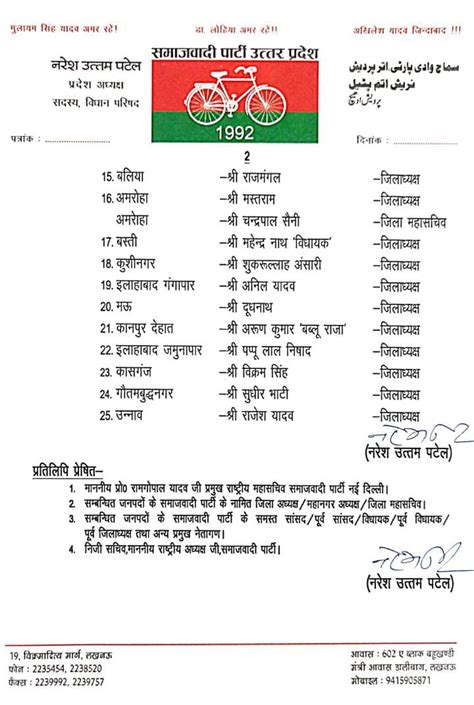 मुलायम सिंह यादव अमर रहें! डा. लोहिया अमर रहें! अखिलेश यादव जिन्दाबाद !!!
समाजवादी पार्टी उत्तर प्रदेश
नरेश उत्तम पटेल
प्रदेश अध्यक्ष
सदस्य, विधान परिषद
سماج وادی پارٹی اتر پردیش
نریش اتم پٹیل
1992
पत्रांक : दिनांक :
2
15. बलिया –श्री राजमंगल –जिलाध्यक्ष
16. अमरोहा –श्री मस्तराम –जिलाध्यक्ष
अमरोहा –श्री चन्द्रपाल सैनी –जिला महासचिव
17. बस्ती –श्री महेन्द्र नाथ 'विधायक' –जिलाध्यक्ष
18. कुशीनगर –श्री शुकरूल्लाह अंसारी –जिलाध्यक्ष
19. इलाहाबाद गंगापार –श्री अनिल यादव –जिलाध्यक्ष
20. मऊ –श्री दूधनाथ –जिलाध्यक्ष
21. कानपुर देहात –श्री अरूण कुमार 'बब्लू राजा' –जिलाध्यक्ष
22. इलाहाबाद जमुनापार –श्री पप्पू लाल निषाद –जिलाध्यक्ष
23. कासगंज –श्री विक्रम सिंह –जिलाध्यक्ष
24. गौतमबुद्धनगर –श्री सुधीर भाटी –जिलाध्यक्ष
25. उन्नाव –श्री राजेश यादव –जिलाध्यक्ष
(नरेश उत्तम पटेल)
प्रतिलिपि प्रेषित–
1. माननीय प्रो0 रामगोपाल यादव जी प्रमुख राष्ट्रीय महासचिव समाजवादी पार्टी नई दिल्ली।
2. सम्बन्धित जनपदों के समाजवादी पार्टी के नामित जिला अध्यक्ष/महानगर अध्यक्ष/जिला महासचिव।
3. सम्बन्धित जनपदों के समाजवादी पार्टी के समस्त सांसद/पूर्व सांसद/विधायक/पूर्व विधायक/
पूर्व जिलाध्यक्ष तथा अन्य प्रमुख नेतागण।
4. निजी सचिव,माननीय राष्ट्रीय अध्यक्ष जी,समाजवादी पार्टी।
(नरेश उत्तम पटेल)
19, विक्रमादित्य मार्ग, लखनऊ आवास : 602 ए ब्लाक बहुखण्डी
फोन : 2235454, 2238520 मंत्री आवास डालीबाग, लखनऊ
फैक्स : 2239992, 2239757 मोबाइल : 9415905871